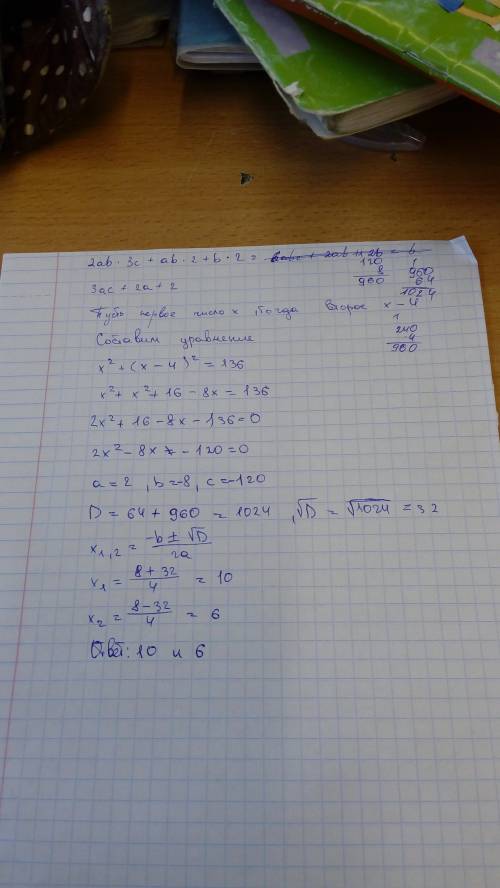 2ab · 3c + ab · 2 + b · 2 = 6abc + 2ab + 2b = b
3ac + 2a + 2
120
8
960
1
960
64
1024
Пусть первое число x, тогда второе x – 4
1
240
4
960
Составим уравнение
x² + (x – 4)² = 136
x² + x² + 16 – 8x = 136
2x² + 16 – 8x – 136 = 0
2x² – 8x – 120 = 0
a = 2, b = –8, c = –120
D = 64 + 960 = 1024, √D = √1024 = 32
x₁,₂ = (–b ± √D)/2a
x₁ = (8 + 32)/4 = 10
x₂ = (8 – 32)/4 = 6
Ответ: 10 и 6